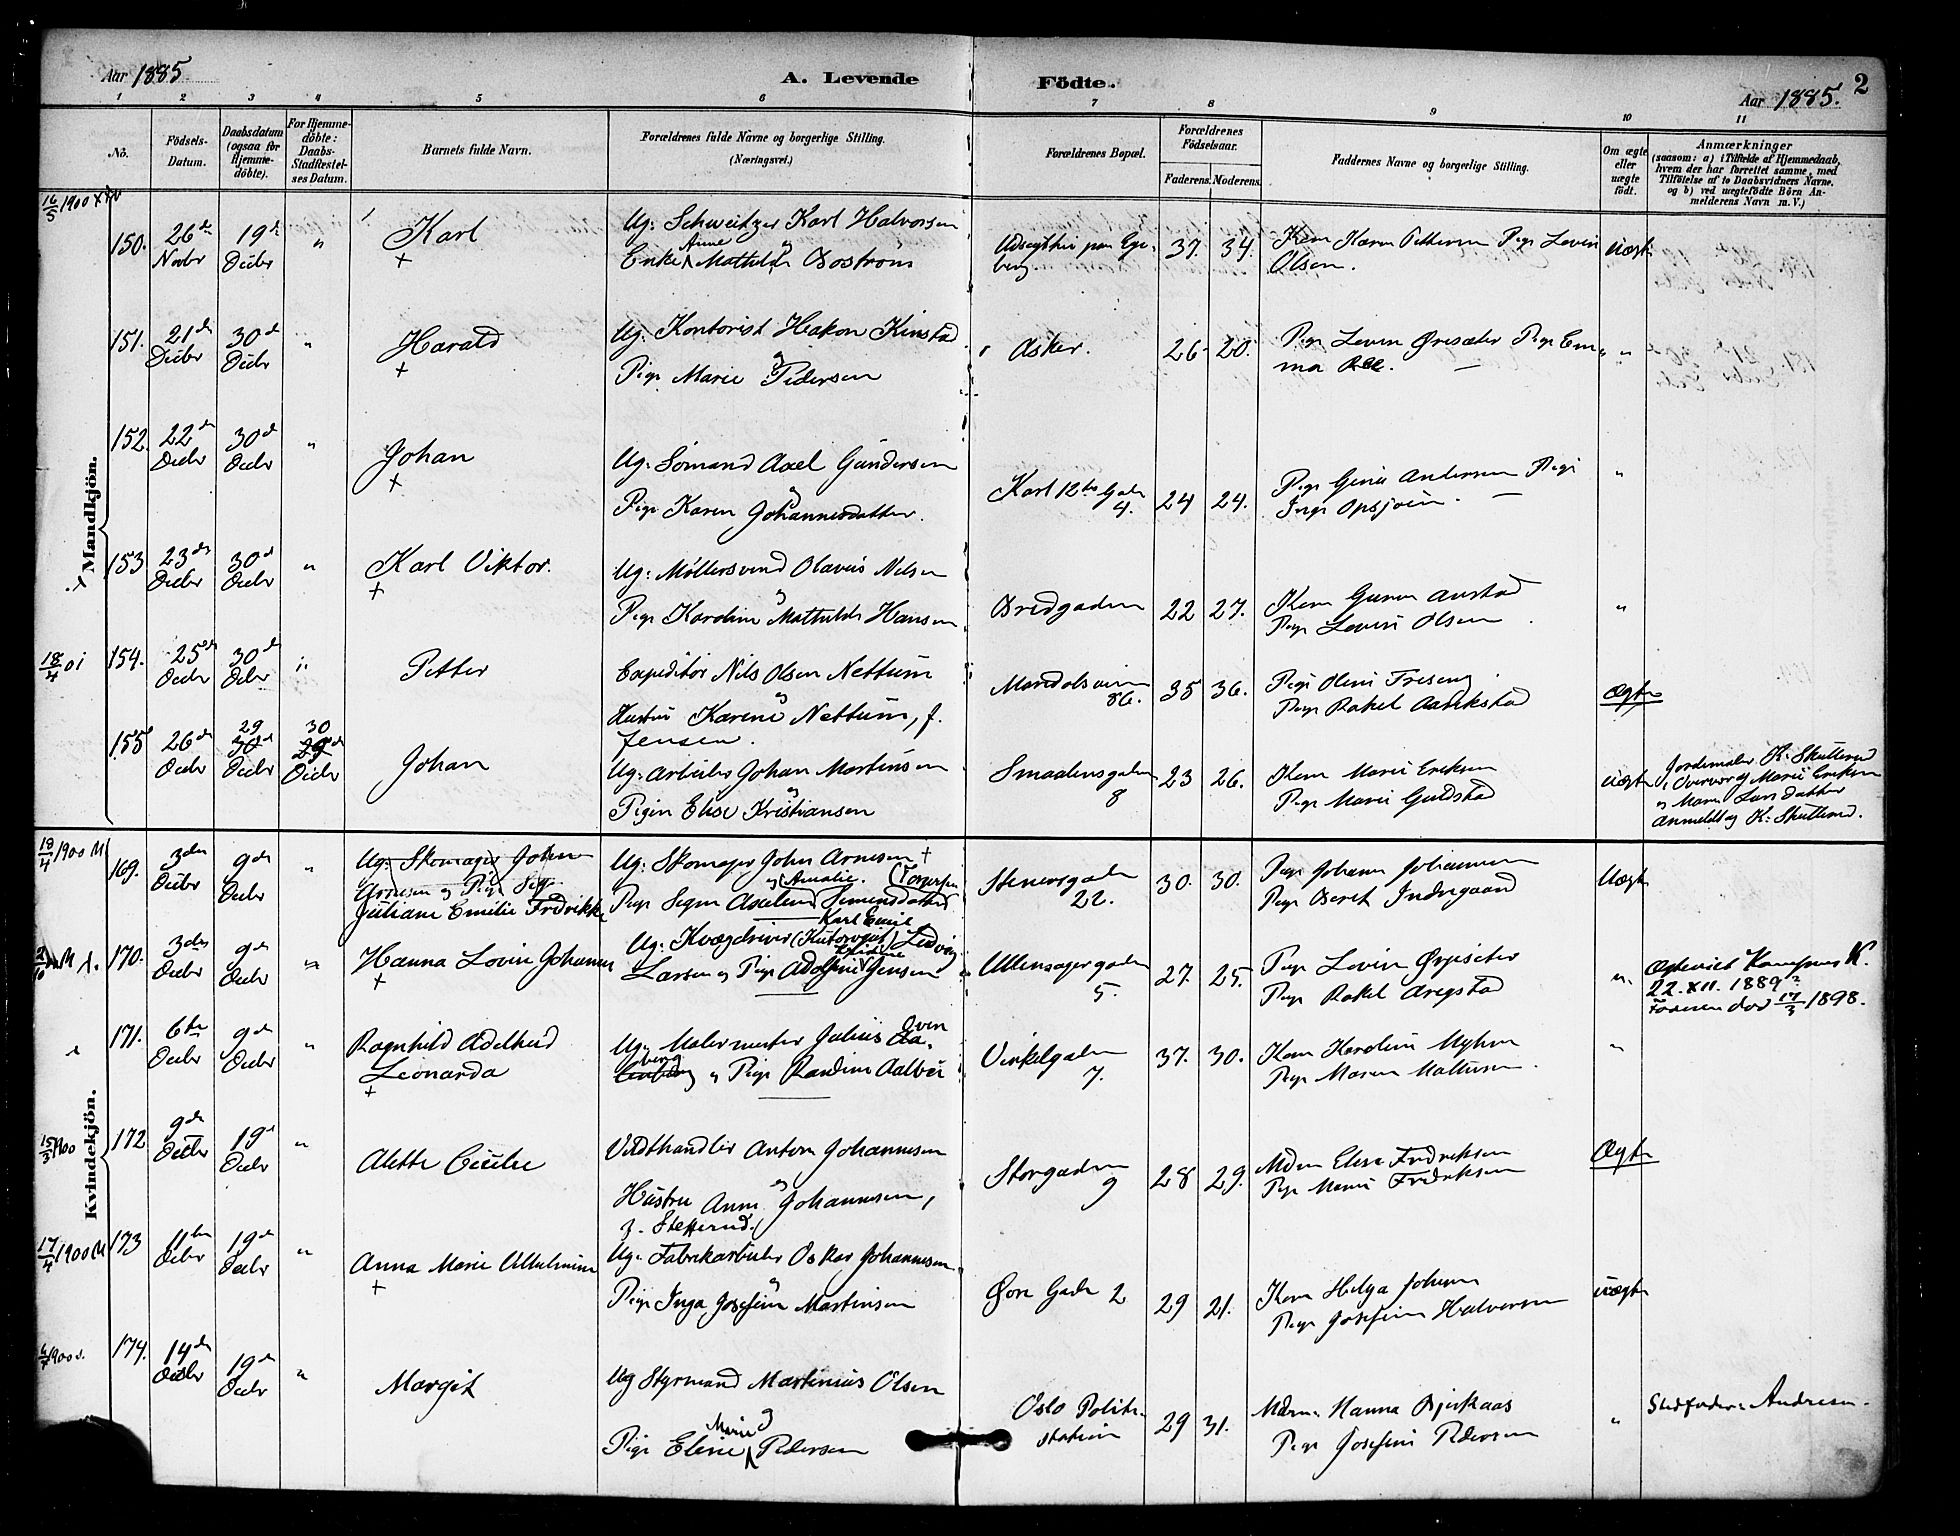 Aar 1885
A. Levende
Födte.
2
Aar 1885.
1 2 3 4 5 6 7 8 9 10 11
No.
Födsels-Datum.
Daabsdatum (ogsaa for Hjemme-döbte).
For Hjemme-döbte: Daabs-Stadfæstel-ses Datum.
Barnets fulde Navn.
Forældrenes fulde Navne og borgerlige Stilling.
(Næringsvei.)
Forældrenes Bopæl.
Forældrenes Födselsaar.
Faderens. Moderens.
Faddernes Navne og borgerlige Stilling.
Om ægte eller uægte födt.
Anmærkninger
(saasom: a) i Tilfælde af Hjemmedaab,
hvem der har forrettet samme, med
Tilföielse af to Daabsvidners Navne,
og b) ved uægtefödte Börn An-
melderens Navn m. V.)
Mandkjön.
16/5 1900
150. 26de Novbr 19de Decbr " Karl +
Ug: Schweitzer Karl Halvorsen
Enke Anne Mathilde Boström
37. 34.
Kone Karen Pettersen Pige Lovise
Olsen.
Uægte
151. 21de Decbr 30de Decbr " Harald +
Ug: Kontorist Hakon Kinstad
og
Pige Marie Pedersen
Asker. 26 20.
Pige Lovise Pige Em-
ma "
152. 22de Decbr 30de Decbr " Johan +
Ug: Sömand Axel Gundersen
og
Pige Karen Johannesdatter.
Karl 12tes Gade
4. 24 24.
Pige Gina Andersen Pige
Inga "
153 23de Decbr 30de Decbr " Karl Viktor. +
Ug: Möllersvend Olavus Nilsen
og
Pige Karoline Mathilde Hansen
Bredgaden 22 27.
Kone Gunva Austad
Pige Lovise Olsen "
18/4 01
154. 25de Decbr 30de Decbr " Petter
Expeditör Nils Olsen Nettum
og
Hustru Karine Nettum, f.
Jensen.
86. 35 36.
Pige Oline
Pige Rakel
Ægte
155 26de Decbr 29 30de Decbr 30 29de Decbr Johan
Ug: Arbeider Johan Martinsen
og
Pigen Elise Kristiansen
Smaalensgaden
8 23 26.
Kone Marie Eriksen
Pige Marie Guldstad
Uægte
Jordemoder K. Skullerud
i Overvær af Marie Eriksen
og Maren Larsdatter
Anmeldt af K: Skullerud.
Kvindekjön.
18/4 1900 M
169. 3den Decbr 9de Decbr "
Ug: Skomager Johan
Arnesen og Pige Sig
Juliane Emilie Fredrikke
Ug: Skomager John Arnesen +
og Amalie. (Torgersen
Pige Signe Axeline Simensdatter
Stenersgaden
22. 30. 30.
Pige Johanne Johannesen
Pige Beret Indregaard
Uægte
170. 3den Decbr 9de Decbr " Hanna Lovise Johanne +
Karl Emil
Ug: Kvægdriver (Kuforgjæt) Ludvig
Larsen og Pige Adolfine Jensen
Ullensagergaden
5. 27. 25.
Pige Lovise
Pige Rakel
"
Ægteviet Kampens K.
22. XII. 1889
Faderen död 17/3 1898.
171. 6te Decbr 9de Decbr " Ragnhild Adelheid
Leonarda +
Ug: Malermester Julius Oven
berg og Pige Randine Aalbu
Vinkelgaden
7. 37. 30.
Kone Karoline Myhre
Pige Maren Mathisen
"
15/3 1900
172 9de Decbr 19de Decbr " Alette Cecilie
Vedthandler Anton Johannesen
og
Hustru Anna Johannesen,
f. Stefferud.
Storgaden
9 28 29.
Mdm Elise Fredriksen
Pige Marie Fredriksen
Ægte
17/4 1900 M
173 11te Decbr 19de Decbr " Anna Marie Vilhelmine +
Ug: Fabrikarbeider Oskar Johannesen
og
Pige Inga Josefine Martinsen
Övre Gade 2 29 21.
Kone Helga Johnsen
Pige Josefine Halvorsen
Uægte
174. 14de Decbr 19de Decbr " Margit
Ug Styrmand Martinius Olsen
og
Pige Eline Marie Pedersen
Oslo Politi-
station 29 31.
Mdm. Hanna Bjerkaas
Pige Josefine Pedersen
"
Stedfader: Andresen.